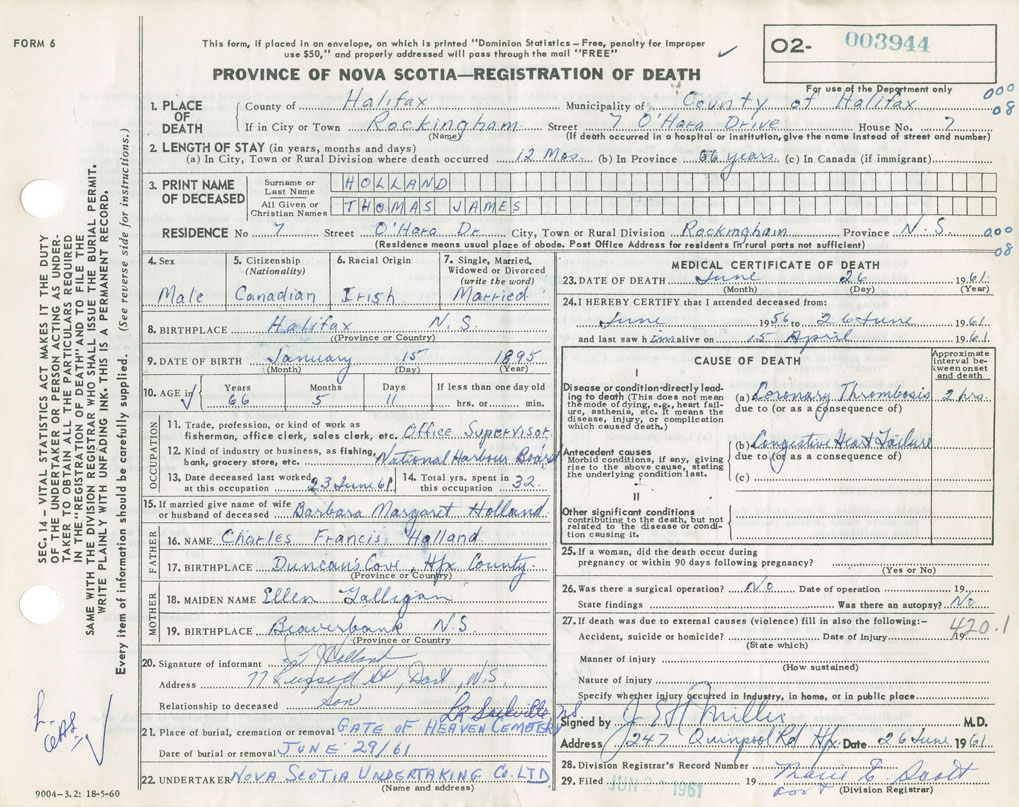 FORM 6
This form, if placed in an envelope, on which is printed "Dominion Statistics – Free, penalty for improper
use $50," and properly addressed will pass through the mail "FREE"
O2- 003944
PROVINCE OF NOVA SCOTIA—REGISTRATION OF DEATH
For use of the Department only
000
08
1. PLACE OF DEATH
County of Halifax Municipality of County of Halifax
If in City or Town Rockingham Street 7 O'Hara Drive House No. 7
(Name) (If death occurred in a hospital or institution, give the name instead of street and number)
2. LENGTH OF STAY (in years, months and days)
(a) In City, Town or Rural Division where death occurred 12 Mos. (b) In Province 66 years. (c) In Canada (if immigrant)
3. PRINT NAME OF DECEASED
Surname or Last Name HOLLAND
All Given or Christian Names THOMAS JAMES
RESIDENCE No 7 Street O'Hara Dr. City, Town or Rural Division Rockingham Province N.S.
000
08
(Residence means usual place of abode. Post Office Address for residents in rural parts not sufficient)
4. Sex
Male
5. Citizenship
(Nationality)
Canadian
6. Racial Origin
Irish
7. Single, Married,
Widowed or Divorced
(write the word)
Married
8. BIRTHPLACE Halifax N.S.
(Province or Country)
9. DATE OF BIRTH January 15 1895
(Month) (Day) (Year)
10. AGE in
Years Months Days If less than one day old
66 5 11 hrs. or min.
OCCUPATION
11. Trade, profession, or kind of work as
fisherman, office clerk, sales clerk, etc. Office Supervisor
12. Kind of industry or business, as fishing,
bank, grocery store, etc. National Harbour Board
13. Date deceased last worked
at this occupation 23 June 61
14. Total yrs. spent in
this occupation 32.
15. If married give name of wife
or husband of deceased Barbara Margaret Holland
FATHER
16. NAME Charles Francis Holland
17. BIRTHPLACE Duncan's Cove, Hfx County.
(Province or Country)
MOTHER
18. MAIDEN NAME Ellen Galligan
19. BIRTHPLACE Beaverbank N.S.
(Province or Country)
20. Signature of informant J Holland
Address 77 Russell St, Dart, N.S.
Relationship to deceased Son
Lr Sackville N.S.
21. Place of burial, cremation or removal GATE OF HEAVEN CEMETERY
Date of burial or removal JUNE 29/61
22. UNDERTAKER NOVA SCOTIA UNDERTAKING CO. LTD
(Name and address)
9004–3.2: 18-5-60
MEDICAL CERTIFICATE OF DEATH
23. DATE OF DEATH June 26 1961
(Month) (Day) (Year)
24. I HEREBY CERTIFY that I attended deceased from:
June 1956 to 26 June 1961
and last saw him alive on 15 April 1961
CAUSE OF DEATH
Approximate
interval be-
tween onset
and death
I
Disease or condition directly lead-
ing to death (This does not mean
the mode of dying, e.g., heart fail-
ure, asthenia, etc. It means the
disease, injury, or complication
which caused death.)
(a) Coronary Thrombosis 2 hrs.
due to (or as a consequence of)
Antecedent causes
Morbid conditions, if any, giving
rise to the above cause, stating
the underlying condition last.
(b) Congestive Heart Failure
due to (or as a consequence of)
(c)
II
Other significant conditions
contributing to the death, but not
related to the disease or condi-
tion causing it.
25. If a woman, did the death occur during
pregnancy or within 90 days following pregnancy?
(Yes or No)
26. Was there a surgical operation? No Date of operation 19
State findings Was there an autopsy? No
27. If death was due to external causes (violence) fill in also the following:-
420.1
Accident, suicide or homicide? Date of injury 19
(State which)
Manner of injury
(How sustained)
Nature of injury
Specify whether injury occurred in industry, in home, or in public place
Signed by J E H Miller M.D.
Address 247 Quinpool Rd Hfx. Date 26 June 1961
28. Division Registrar's Record Number
29. Filed JUN 27 1961 E. Scott
(Division Registrar)
SEC. 14 – VITAL STATISTICS ACT MAKES IT THE DUTY
OF THE UNDERTAKER OR PERSON ACTING AS UNDER-
TAKER TO OBTAIN ALL THE PARTICULARS REQUIRED
IN THE "REGISTRATION OF DEATH" AND TO FILE THE
SAME WITH THE DIVISION REGISTRAR WHO SHALL ISSUE THE BURIAL PERMIT.
WRITE PLAINLY WITH UNFADING INK. THIS IS A PERMANENT RECORD.
Every item of information should be carefully supplied. (See reverse side for instructions.)